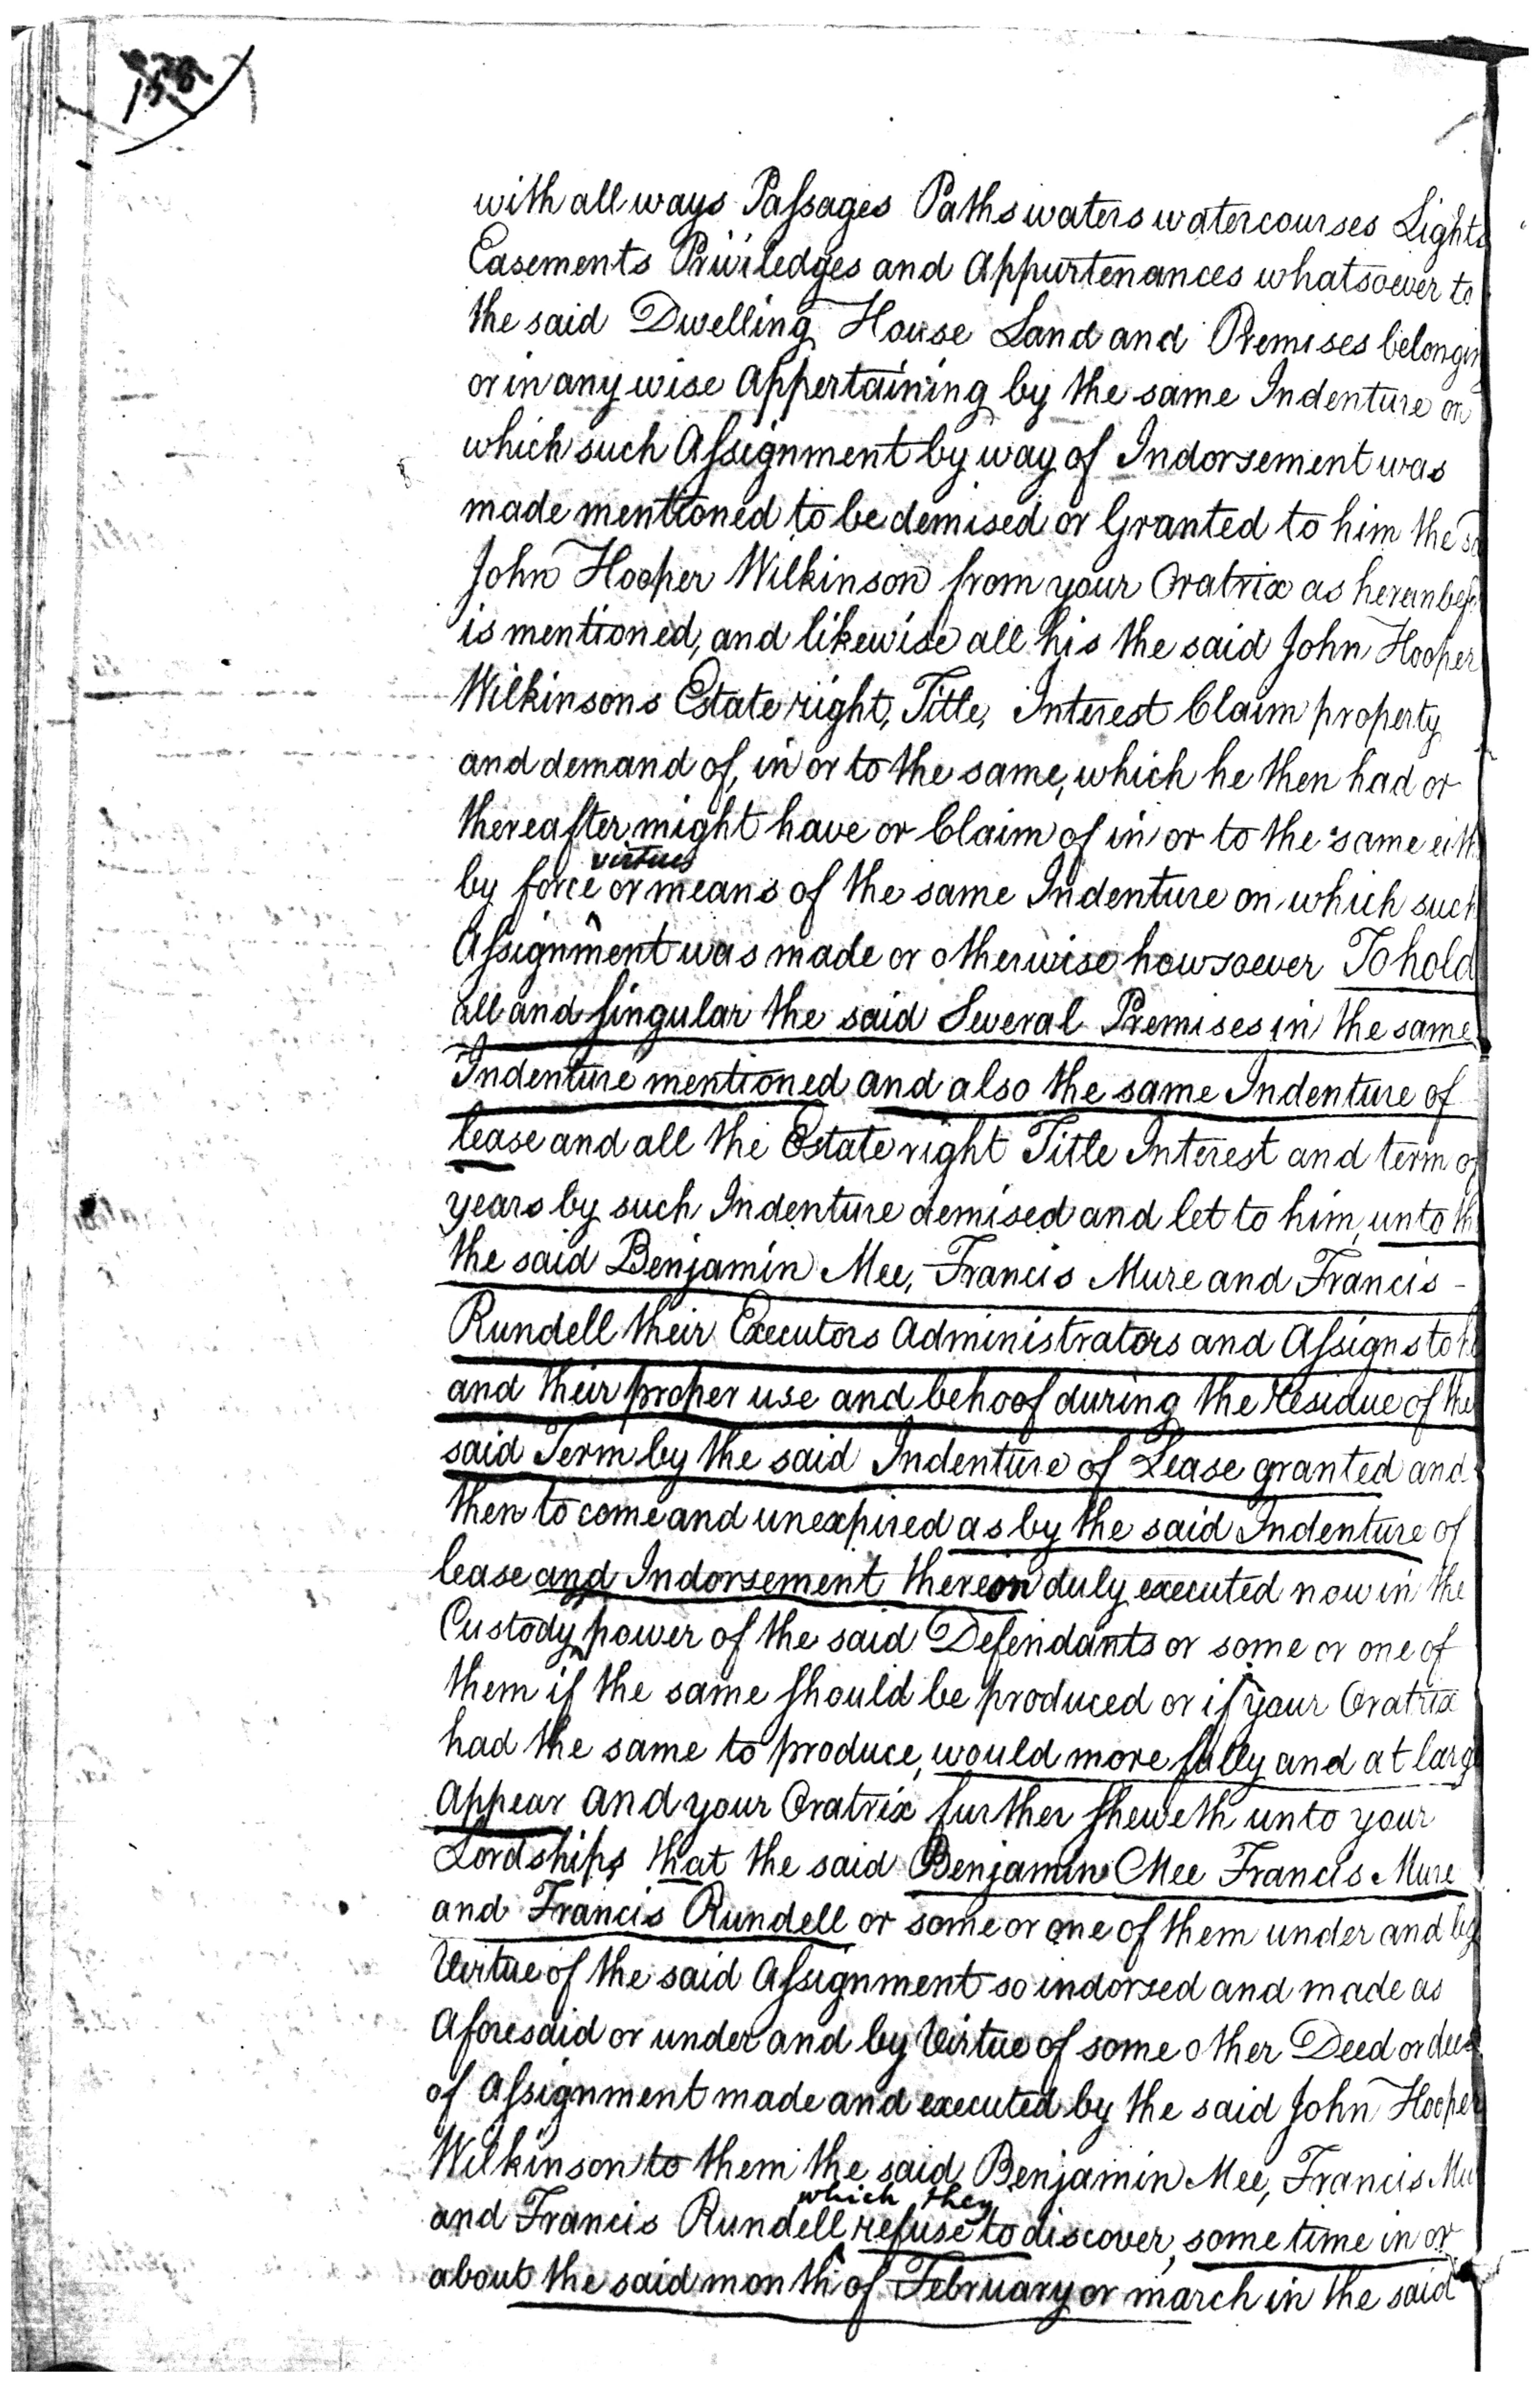 with all ways Paſsages Paths waters watercourses Lights
Easements Priviledges and Appurtenances whatsoever to
the said Dwelling House Land and Premises belongin
or in any wise Appertaining by the same Indenture on
which such Aſsignment by way of Indorsement was
made mentioned to be demised or Granted to him the
John Hooper Wilkinson from your Oratrix as hereinbef
is mentioned, and likewise all his the said John Hooper
Wilkinsons Estate right, Title, Interest Claim property
and demand of, in or to the same, which he then had or
thereafter might have or Claim of in or to the same eith
virtue
by force or means of the same Indenture on which such
Aſsignment was made or otherwise howsoever To hold
all and ſingular the said Several Premises in the same
Indenture mentioned and also the same Indenture of
lease and all the Estate right Title Interest and term of
years by such Indenture demised and let to him, unto th
the said Benjamin Mee, Francis Mure and Francis -
Rundell their Executors Administrators and Aſsigns to
and their proper use and behoof during the Residue of the
said Term by the said Indenture of Lease granted and
then to come and unexpired as by the said Indenture of
lease and Indorsement thereon duly executed now in the
Custody or power of the said Defendants or some or one of
them if the same ſhould be produced or if your Oratrix
had the same to produce, would more fully and at large
Appear And your Oratrix further ſheweth unto your
Lordships that the said Benjamin Mee Francis Mure
and Francis Rundell or some or one of them under and by
Virtue of the said Aſsignment so indorsed and made as
Aforesaid or under and by Virtue of some other Deed or deed
of Aſsignment made and executed by the said John Hooper
Wilkinson to them the said Benjamin Mee, Francis Mu
which they
and Francis Rundell refuse to discover, some time in or
about the said month of February or march in the said